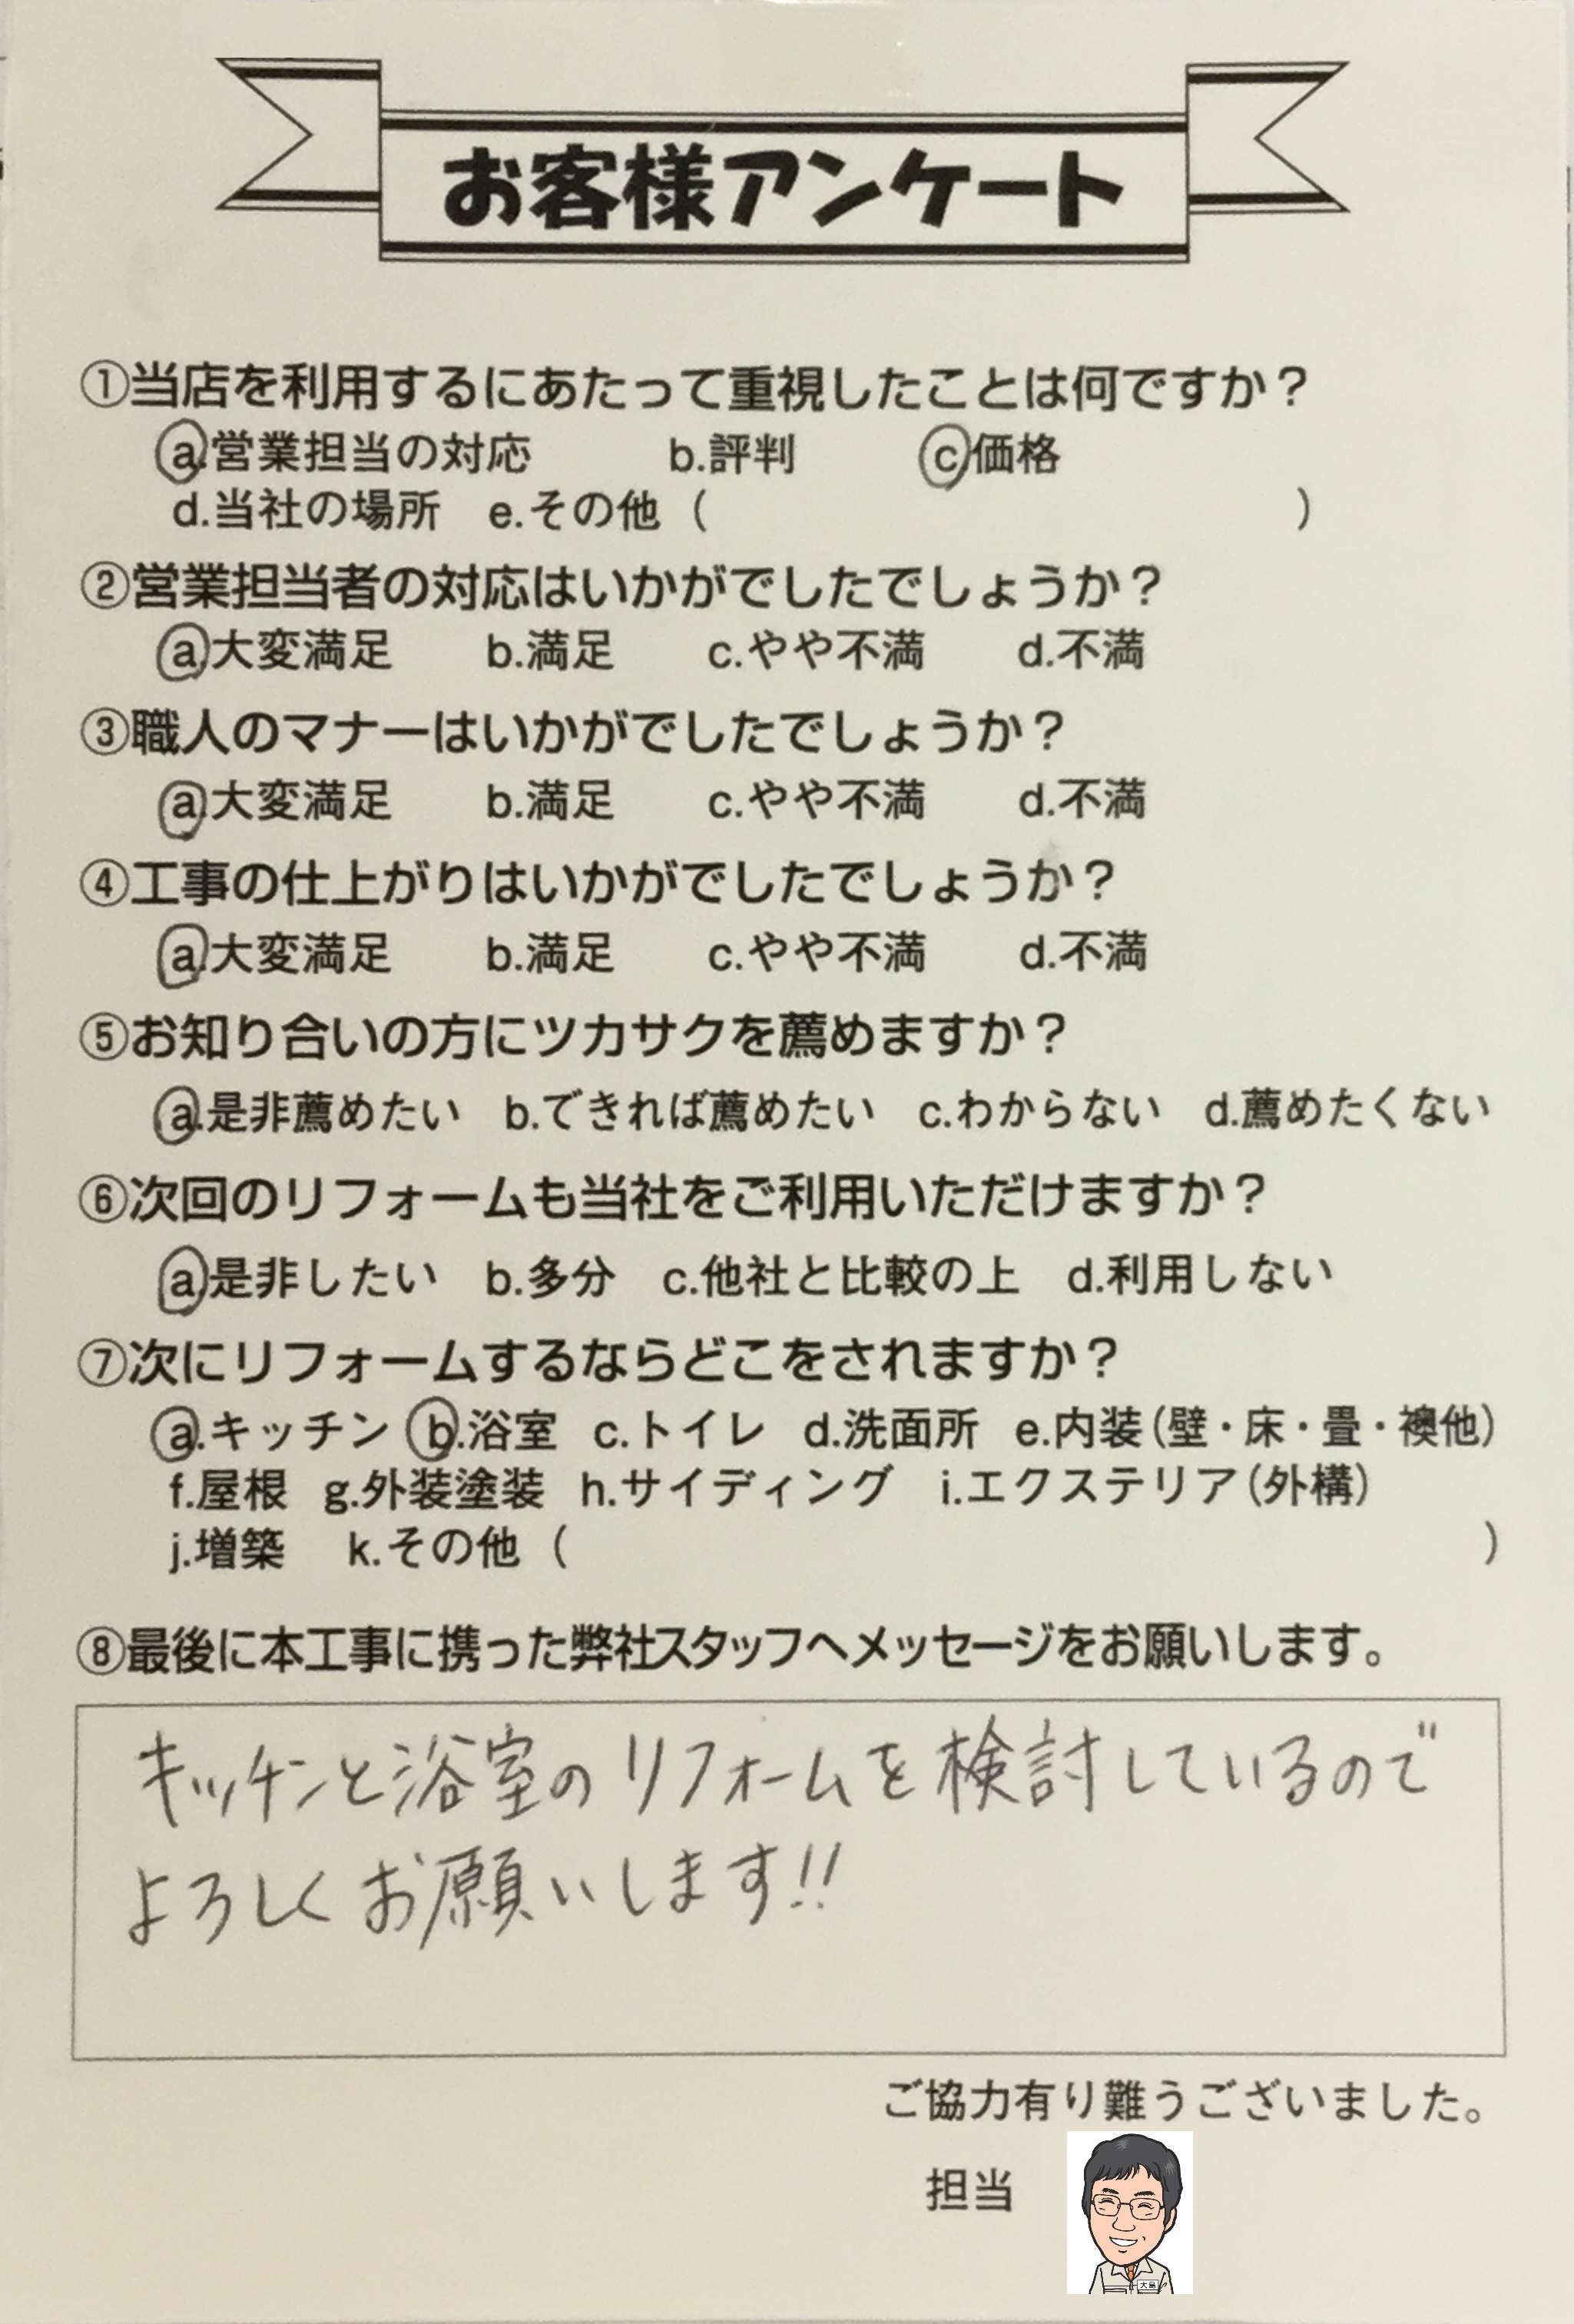 お客様アンケート
①当店を利用するにあたって重視したことは何ですか?
a.営業担当の対応 b.評判 c.価格
d.当社の場所 e.その他 ( )
②営業担当者の対応はいかがでしたでしょうか?
a.大変満足 b.満足 c.やや不満 d.不満
③職人のマナーはいかがでしたでしょうか?
a.大変満足 b.満足 c.やや不満 d.不満
④工事の仕上がりはいかがでしたでしょうか?
a.大変満足 b.満足 c.やや不満 d.不満
⑤お知り合いの方にツカサクを薦めますか?
a.是非薦めたい b.できれば薦めたい c.わからない d.薦めたくない
⑥次回のリフォームも当社をご利用いただけますか?
a.是非したい b.多分 c.他社と比較の上 d.利用しない
⑦次にリフォームするならどこをされますか?
a.キッチン b.浴室 c.トイレ d.洗面所 e.内装(壁・床・畳・襖他)
f.屋根 g.外装塗装 h.サイディング i.エクステリア(外構)
j.増築 k.その他 ( )
⑧最後に本工事に携った弊社スタッフへメッセージをお願いします。
キッチンと浴室のリフォームを検討しているので
よろしくお願いします!!
ご協力有り難うございました。
担当